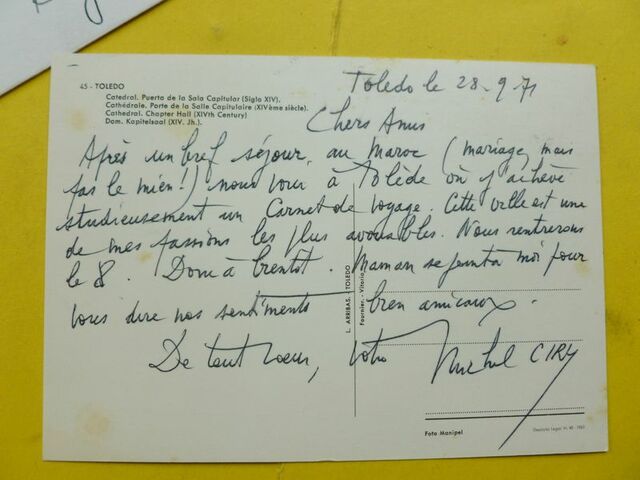 45 - TOLEDO
Catedral. Puerta de la Sala Capitular (Siglo XIV).
Cathédrale. Porte de la Salle Capitulaire (XIVème siècle).
Cathedral. Chapter Hall (XIVth Century)
Dom. Kapitelsaal (XIV. Jh.).
Toledo le 28.9.71
Chers Amis
Après un bref séjour au Maroc (mariage, mais
pas le mien!) nous voici à Tolède où j'achève
studieusement un Carnet de voyage. Cette ville est une
de mes passions les plus avouables. Nous rentrerons
le 8. Donc à bientôt. Maman se joint à moi pour
vous dire nos sentiments bien amicaux.
De tout coeur, votre Michel CIRY
L. ARRIBAS. - TOLEDO
Fournier. - Vitoria
Foto Manipel